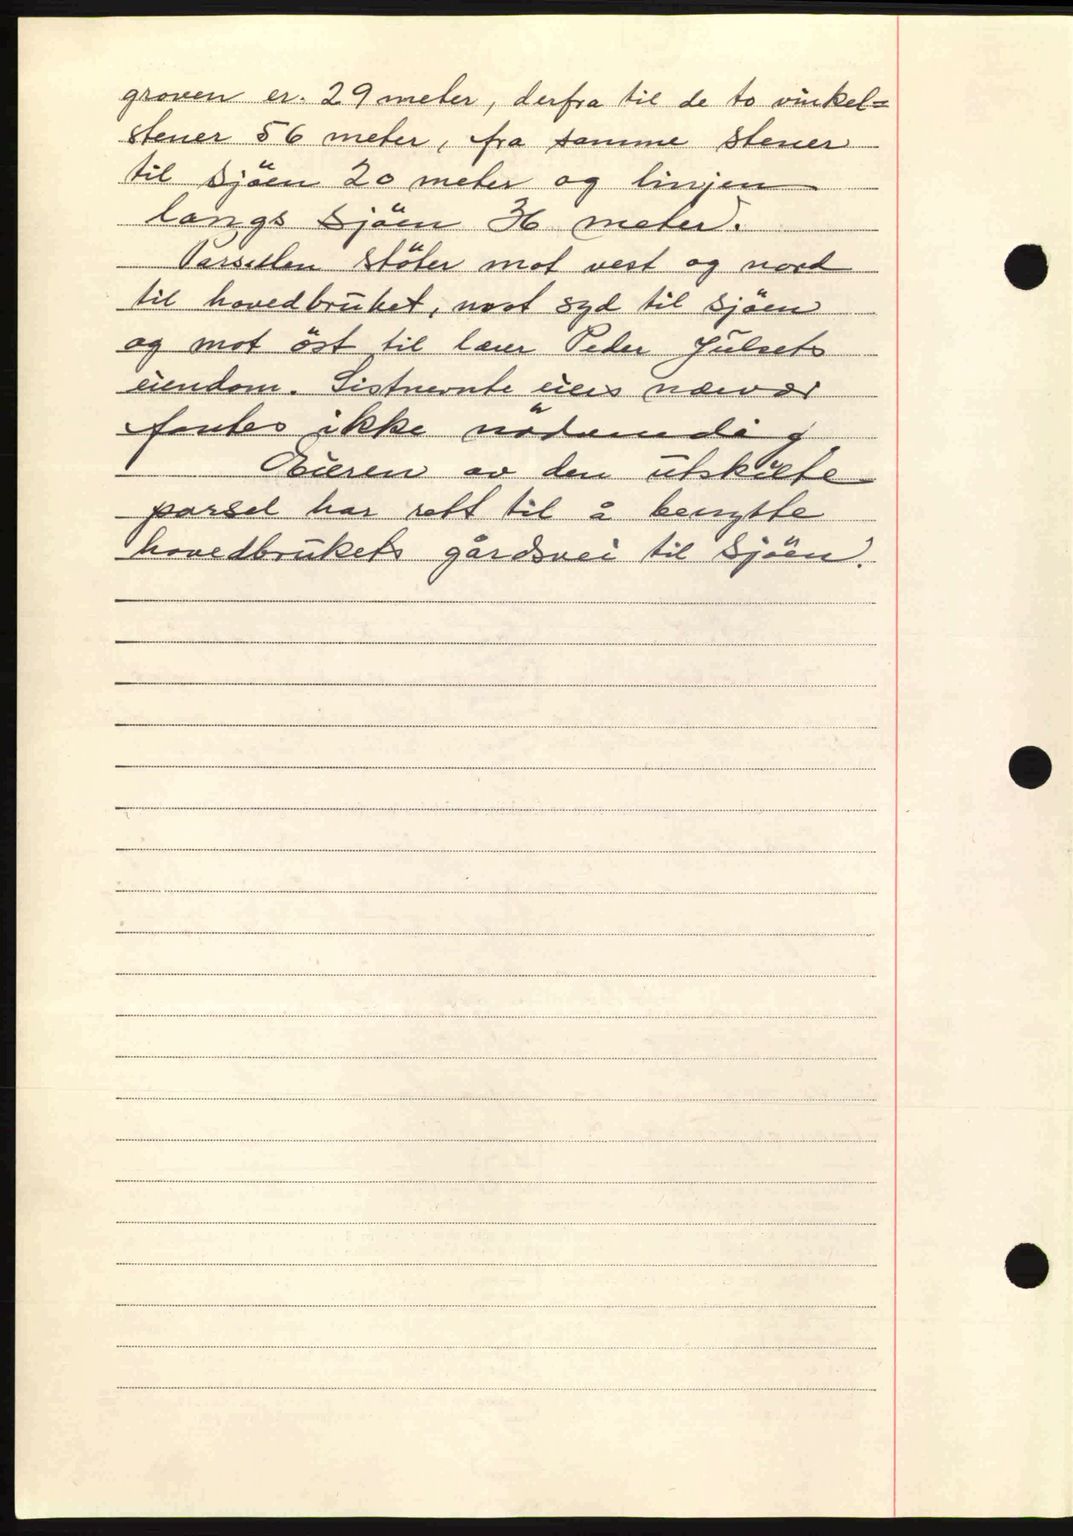 groven er. 29 meter, derfra til de to vinkel=
stener 56 meter, fra samme stener
til sjöen 20 meter og linjen
langs sjöen 36 meter.
Parsellen stöter mot vest og nord
til hovedbruket, mot syd til sjöen
og mot öst til lærer Peder Julsets
eiendom. Sistnevnte eiers nærvær
fantes ikke nödvendig.
Eieren av den utskilte
parsel har rett til å benytte
hovedbrukets gårdsvei til sjöen.